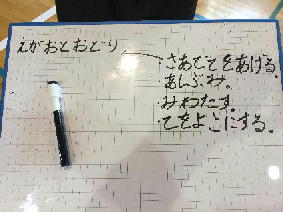 えがおとおどり
・さあてそをあげる。
・あしぶみ。
・みわたす。
・てをよこにする。